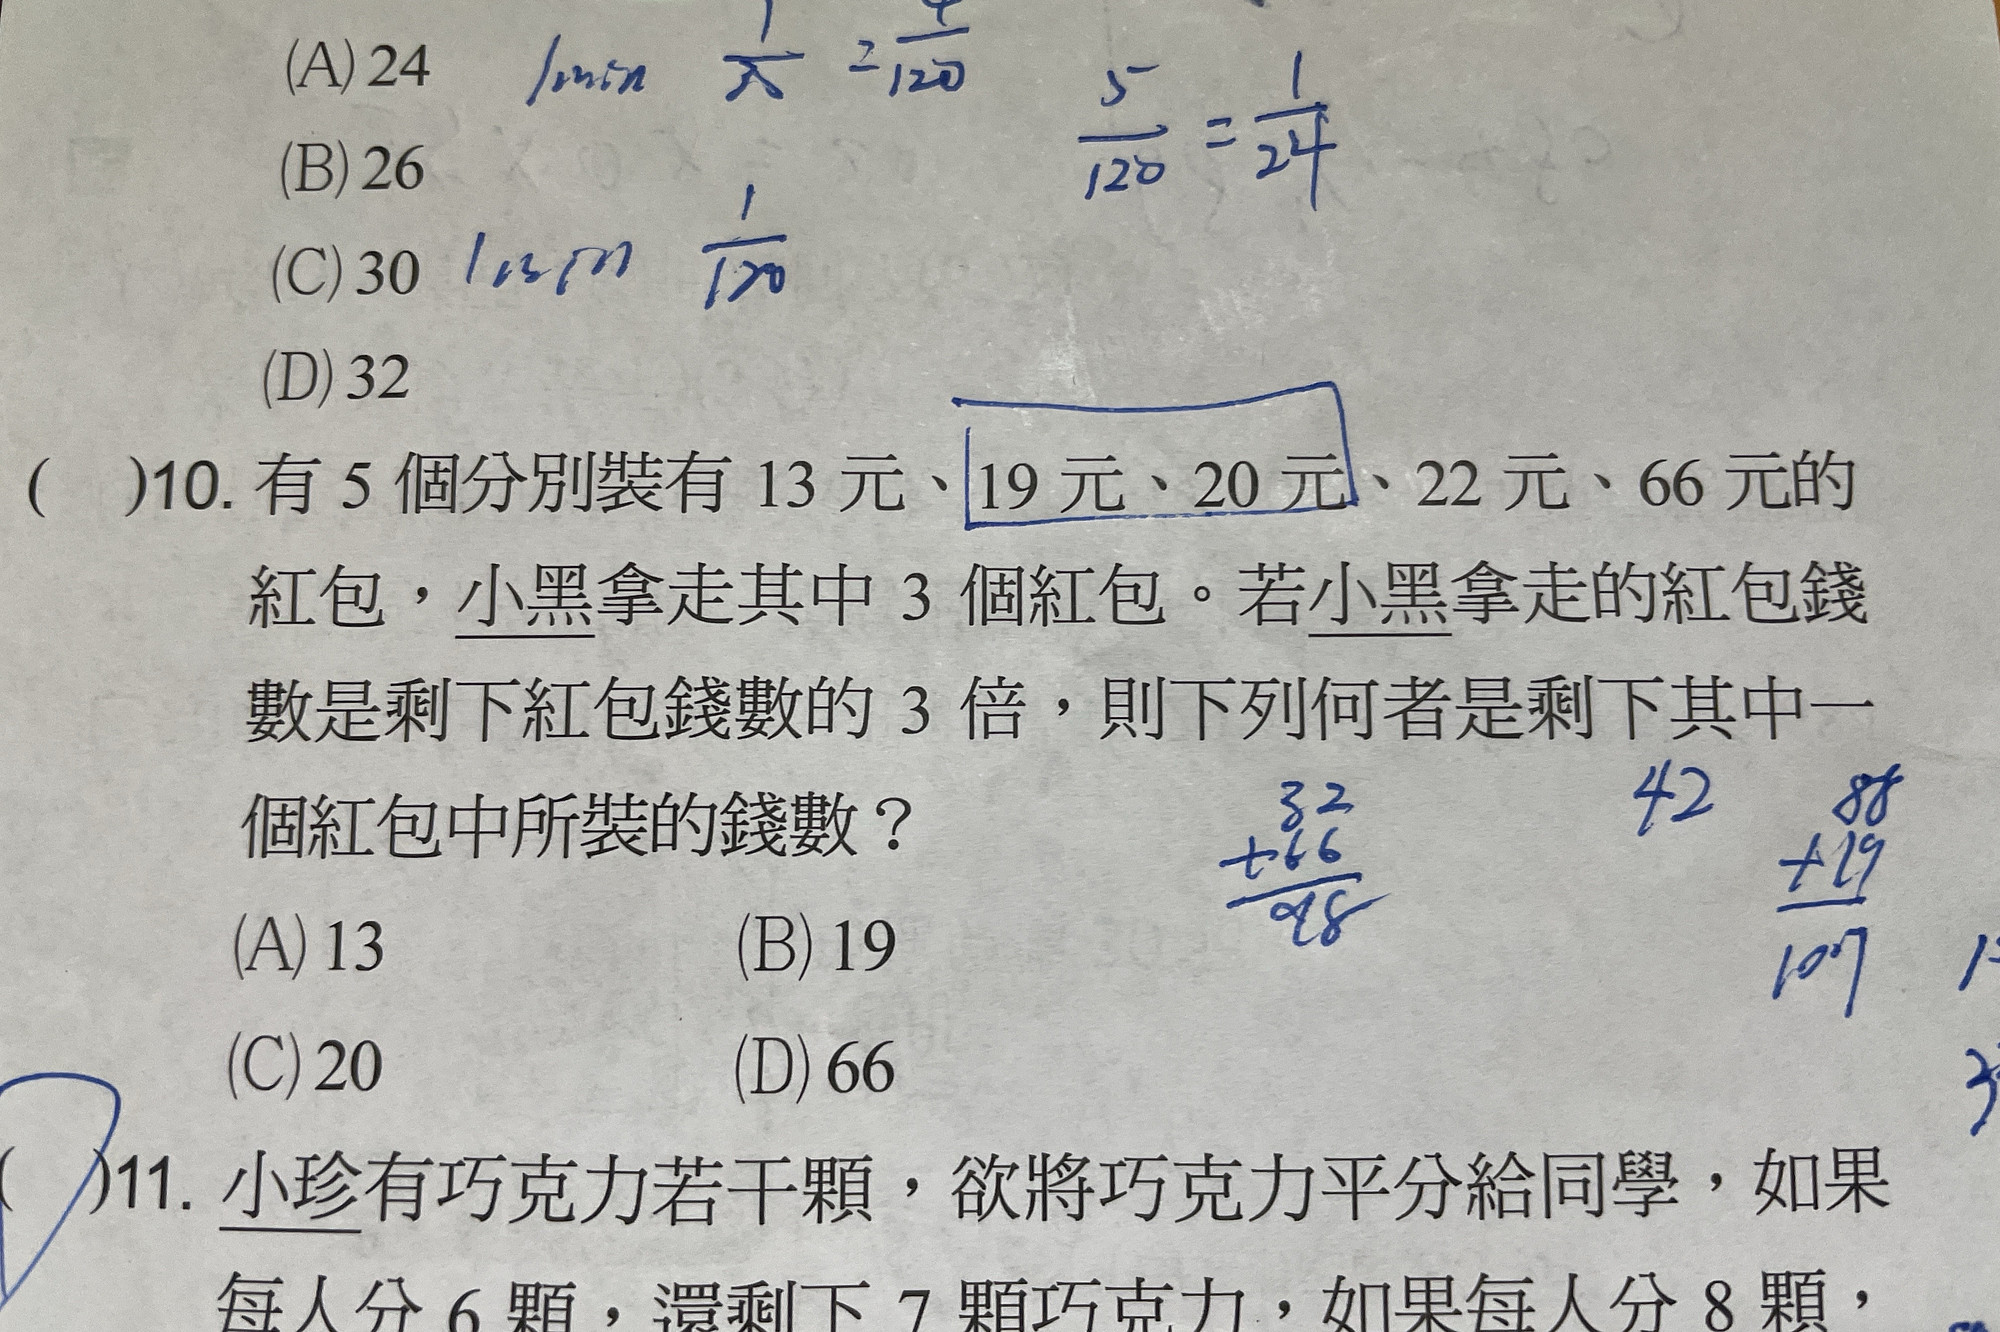 (A) 24 1min 1/30 = 4/120 5/120 = 1/24
(B) 26
(C) 30 1min 1/120
(D) 32
( )10. 有 5 個分別裝有 13 元、19 元、20 元、22 元、66 元的
紅包，小黑拿走其中 3 個紅包。若小黑拿走的紅包錢
數是剩下紅包錢數的 3 倍，則下列何者是剩下其中一
個紅包中所裝的錢數？
32
+66
98
42
88
+19
107
(A) 13 (B) 19
(C) 20 (D) 66
( )11. 小珍有巧克力若干顆，欲將巧克力平分給同學，如果
每人分 6 顆，還剩下 7 顆巧克力，如果每人分 8 顆，